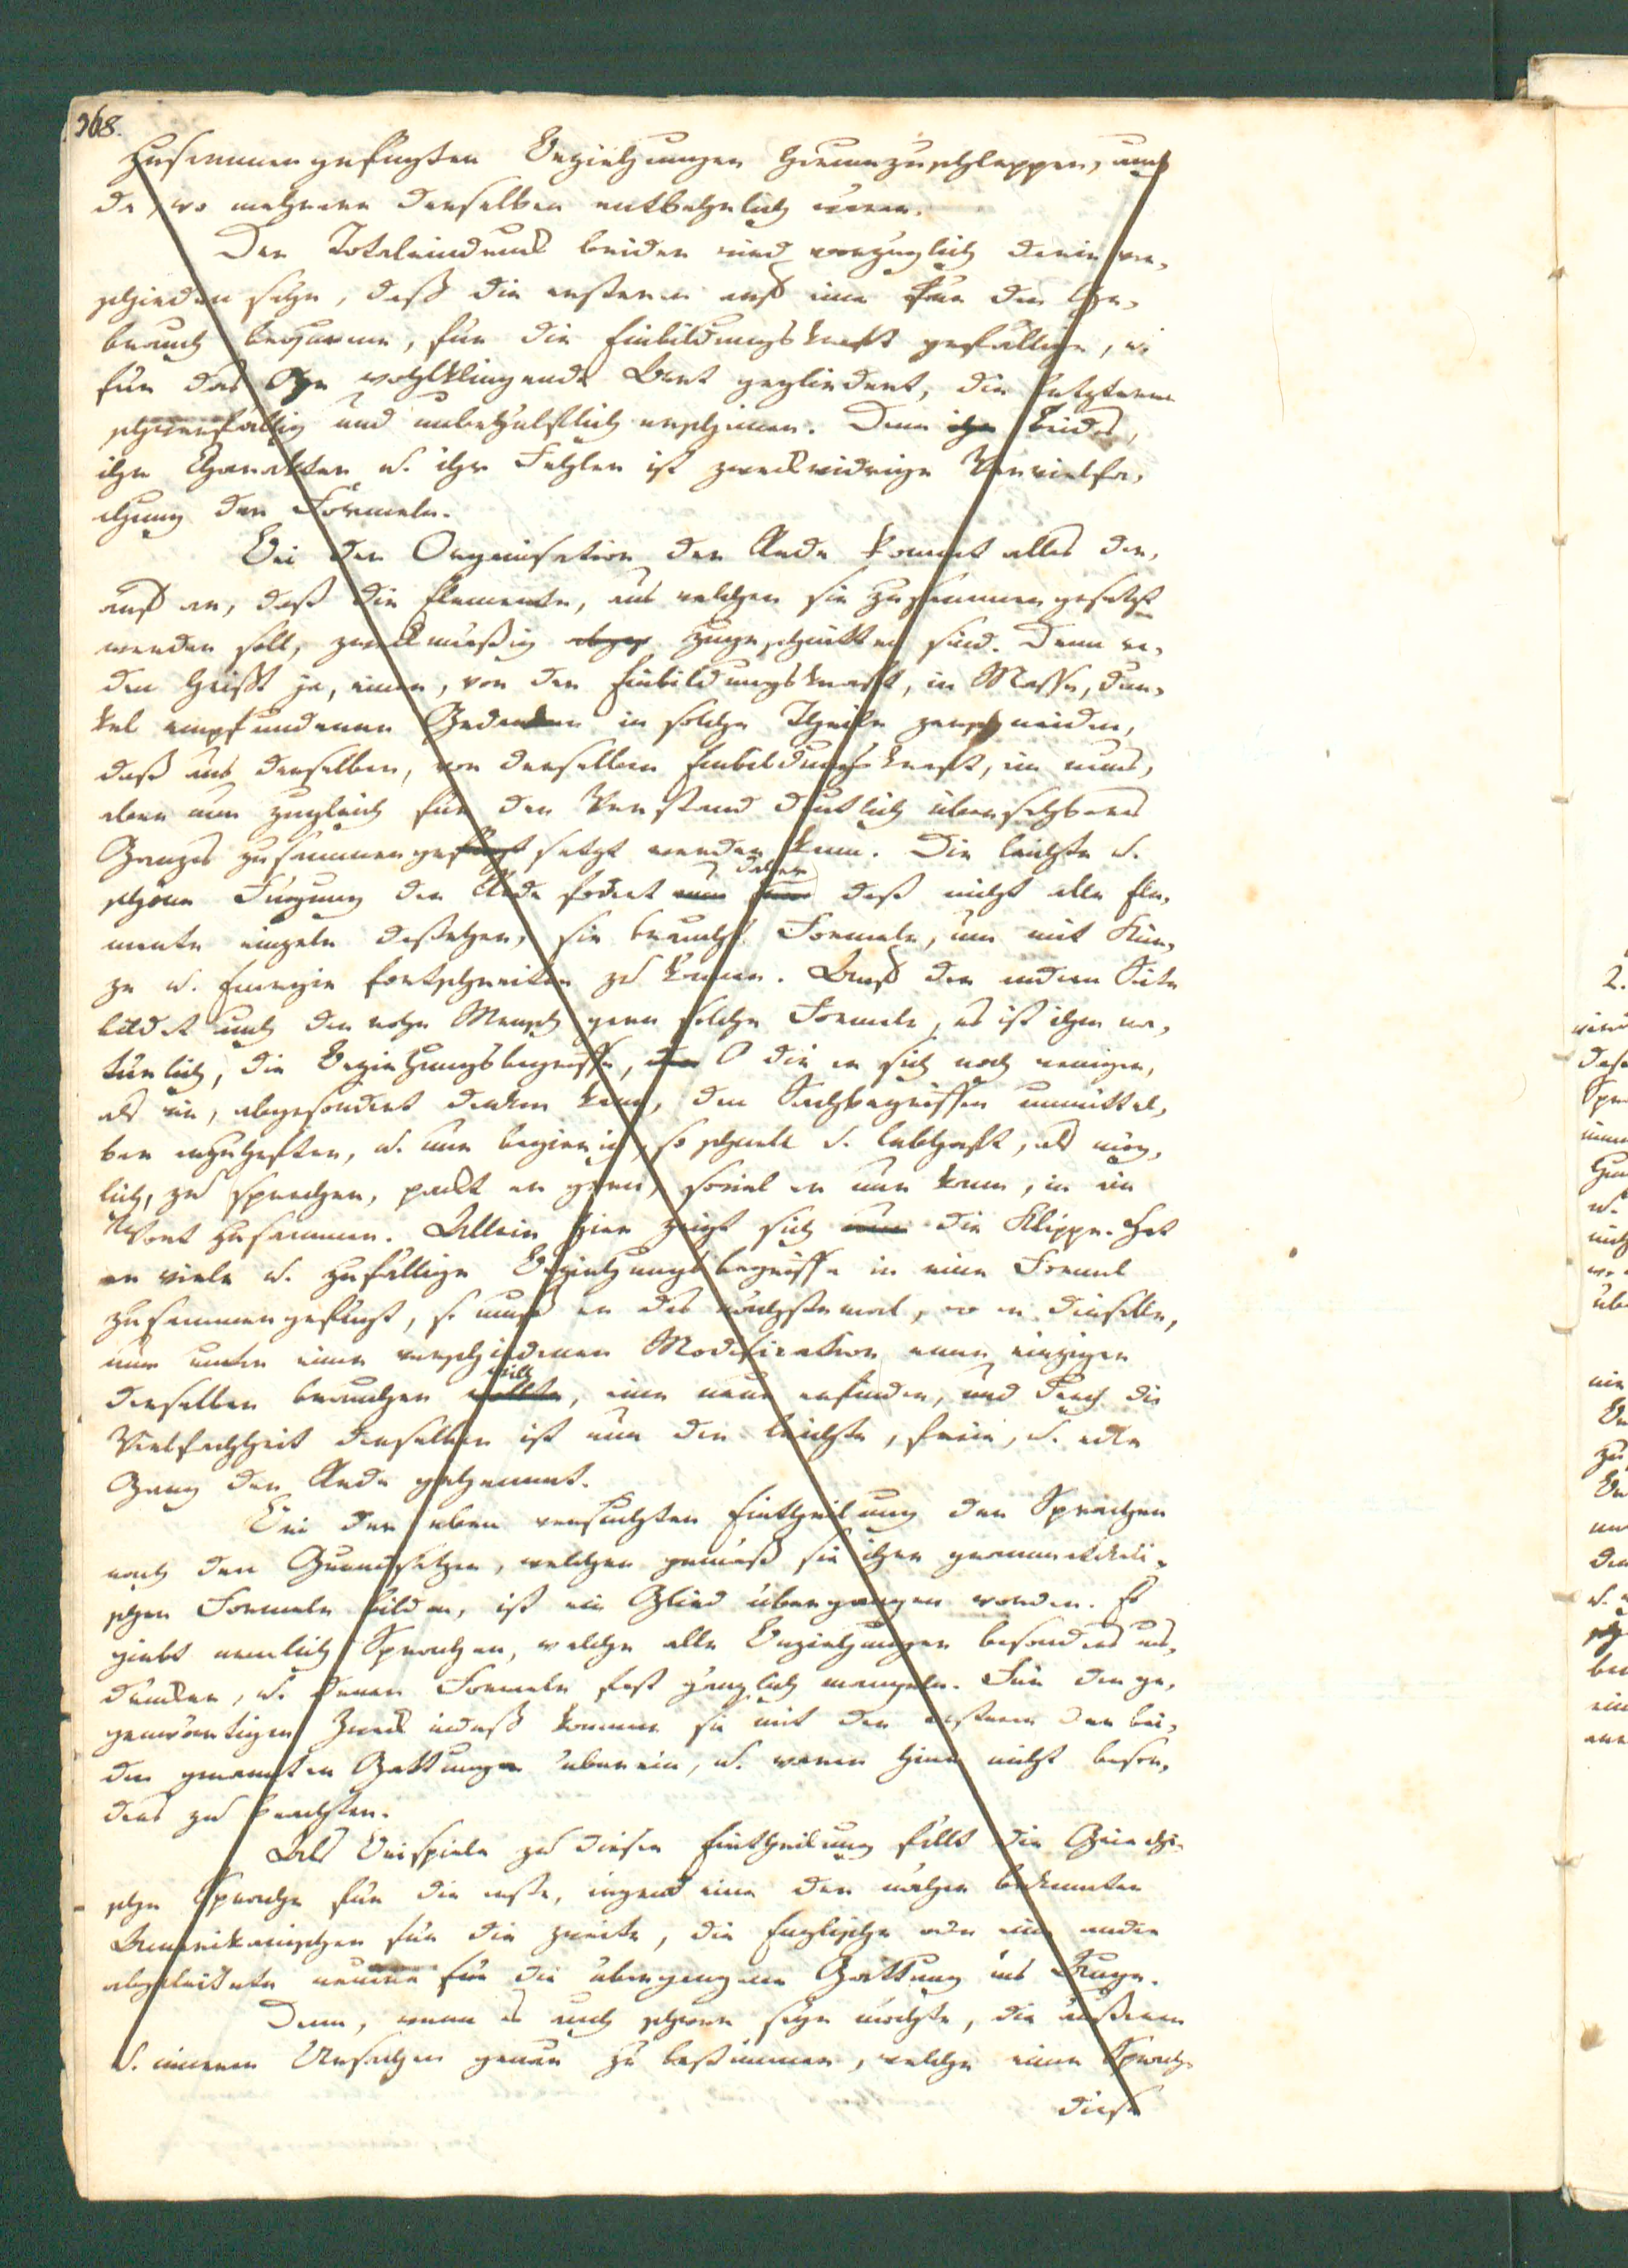 368.
zusammengefügten Beziehungen herumzuschleppen, auch
da, wo mehrere derselben entbehrlich wären.
Der Totaleindruck beider wird vorzüglich darin ver-
schieden seyn, daß die ersteren auf eine für den Ge-
brauch bequeme, für die Einbildungskraft gefällige, u.
für das Ohr wohlklingende Art gegliedert, die letzteren
schwerfällig und unbehülflich erscheinen. Denn ihr beides,
ihr Charakter u. ihr Fehler ist zweckwidrige Vervielfa-
chung der Formeln.
Bei der Organisation der Rede kommt alles dar-
auf an, daß die Elemente, aus welchen sie zusammengesetzt
werden soll, zweckmäßig zugeschnitten sind. Denn re-
den heißt ja, einen, von der Einbildungskraft, in Masse, dun-
kel empfundenen Gedanken in solche Theile zerschneiden,
daß aus denselben, von derselben Einbildungskraft, ein neues,
aber nun zugleich für den Verstand deutlich übersehbares
Ganzes zusammengefügt setzt werden kann. Die leichte u.
schöne Fügung der Rede fodert nun daher daß nicht alle Ele-
mente einzeln dastehen, sie braucht Formeln, um mit Kür-
ze u. Energie fortschreiten zu können. Auf der andern Seite
bildet auch der rohe Mensch gern solche Formeln, es ist ihm na-
türlich, die Beziehungsbegriffe, die er sich noch weniger,
als wir, abgesondert denken kann, den Sachbegriffen unmittel-
bar anzuheften, u. nur begierig, so schnell u. lebhaft, als mög-
lich, zu sprechen, packt er gern, soviel er nur kann, in ein
Wort zusammen. Allein hier zeigt sich nun die Klippe. Hat
er viele u. zufällige Beziehungsbegriffe in eine Formel
zusammengefügt, so muß er das nächstemal, wo er dieselbe,
nur unter einer verschiedenen Modification eines einzigen
derselben brauchen will wollte, eine neue erfinden, und durch die
Vielfachheit derselben ist nun der leichte, freie, u. edle
Gang der Rede gehemmt.
Bei der eben versuchten Eintheilung der Sprachen
nach den Grundsätzen, welchen gemäß sie ihre grammatikali-
schen Formeln bilden, ist ein Glied übergangen worden. Es
giebt nemlich Sprachen, welche alle Beziehungen besonders aus-
drücken, u. denen Formeln fast gänzlich mangeln. Für den ge-
genwärtigen Zweck indeß kommen sie mit den ersteren der bei-
den genannten Gattungen überein, u. waren hier nicht beson-
ders zu beachten.
Als Beispiele zu dieser Eintheilung fällt die Griechi-
sche Sprache für die erste, irgend eine der näher bekannten
Amerikanischen für die zweite, die Englische oder eine andre
abgeleitete neuere für die übergangene Gattung ins Auge.
Denn, wenn es auch schwer seyn möchte, die äußeren
u. inneren Ursachen genau zu bestimmen, welche einer Sprache
diese